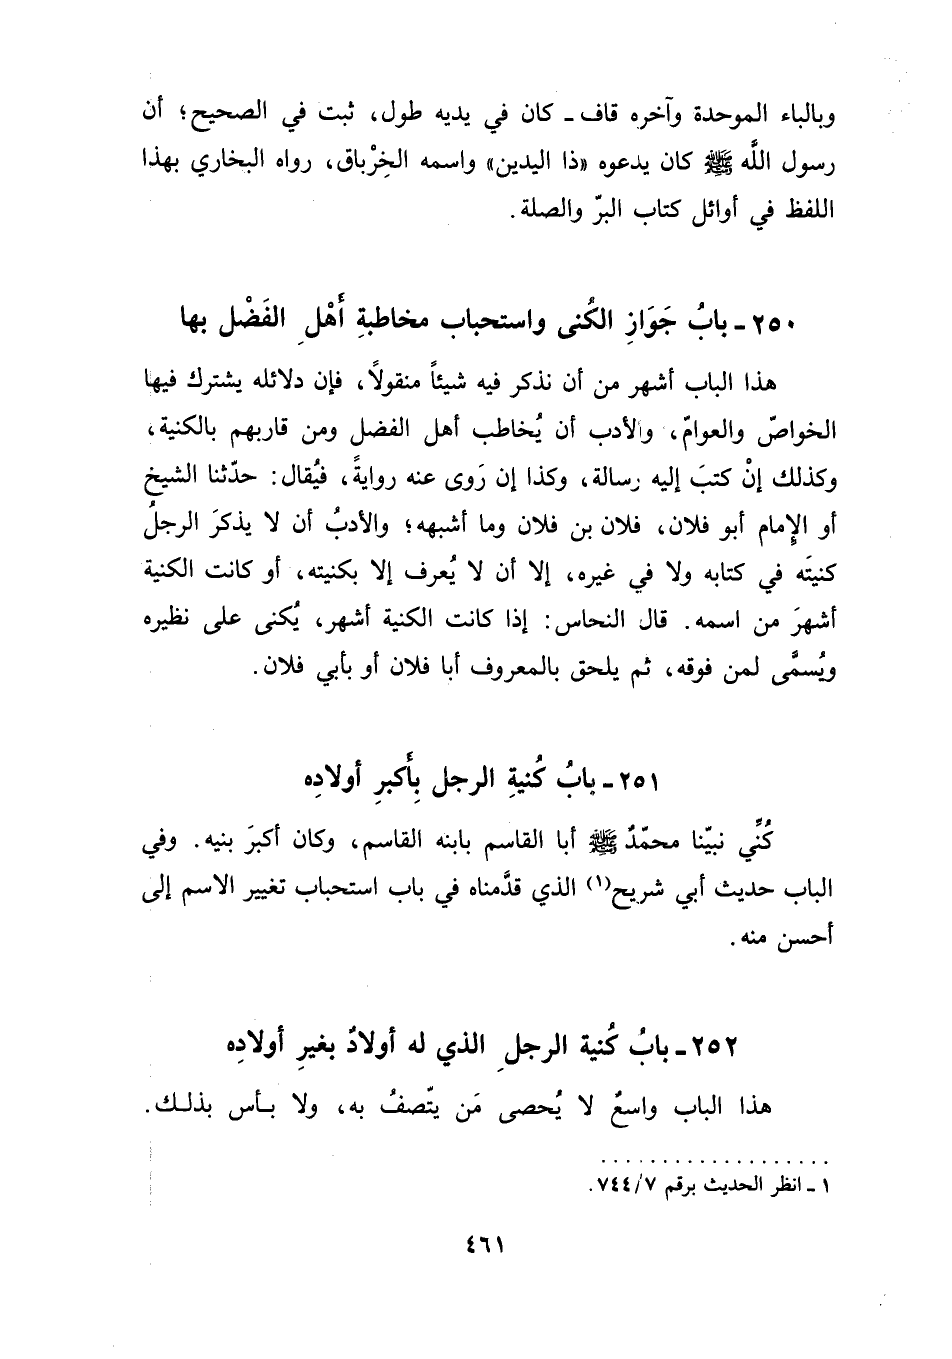 وبالباء الموحدة وآخره قاف ـ كان في يديه طول، ثبت في الصحيح؛ أن
رسول اللَّه ﷺ كان يدعوه «ذا اليدين» واسمه الخِرْباق، رواه البخاري بهذا
اللفظ في أوائل كتاب البرّ والصلة.
٢٥٠ ـ بابُ جَوَازِ الكُنى واستحباب مخاطبةِ أَهْلِ الفَضْل بها
هذا الباب أشهر من أن نذكر فيه شيئاً منقولاً، فإن دلائله يشترك فيها
الخواصّ والعوامّ، والأدب أن يُخاطب أهل الفضل ومن قاربهم بالكنية،
وكذلك إنْ كتبَ إليه رسالة، وكذا إن رَوى عنه روايةً، فيُقال: حدّثنا الشيخ
أو الإِمام أبو فلان، فلان بن فلان وما أشبهه؛ والأدبُ أن لا يذكرَ الرجلُ
كنيتَه في كتابه ولا في غيره، إلا أن لا يُعرف إلا بكنيته، أو كانت الكنية
أشهرَ من اسمه. قال النحاس: إذا كانت الكنية أشهر، يُكنى على نظيره
ويُسمَّى لمن فوقه، ثم يلحق بالمعروف أبا فلان أو بأبي فلان.
٢٥١ ـ بابُ كُنيةِ الرجل بِأَكبرِ أولادِه
كُنِّي نبيّنا محمّدٌ ﷺ أبا القاسم بابنه القاسم، وكان أكبرَ بنيه. وفي
الباب حديث أبي شريح(١) الذي قدَّمناه في باب استحباب تغيير الاسم إلى
أحسن منه.
٢٥٢ ـ بابُ كُنية الرجلِ الذي له أولادٌ بغيرِ أولادِه
هذا الباب واسعٌ لا يُحصى مَن يتّصفُ به، ولا بـأس بذلـك.
١ ـ انظر الحديث برقم ٧٤٤/٧.
٤٦١